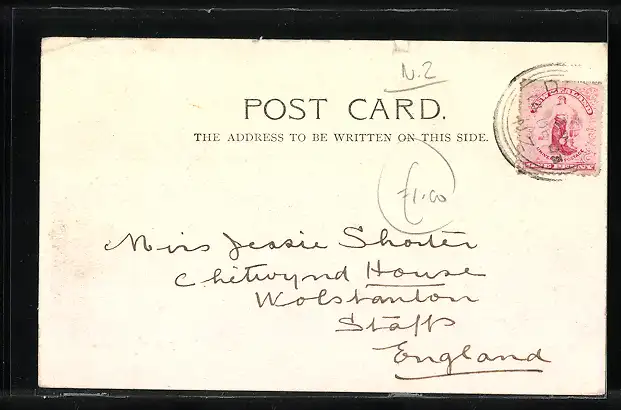 N.Z
POST CARD.
THE ADDRESS TO BE WRITTEN ON THIS SIDE.
£1.00
Miss Jessie Shorter
Chetwynd House
Wolstanton
Staffs
England